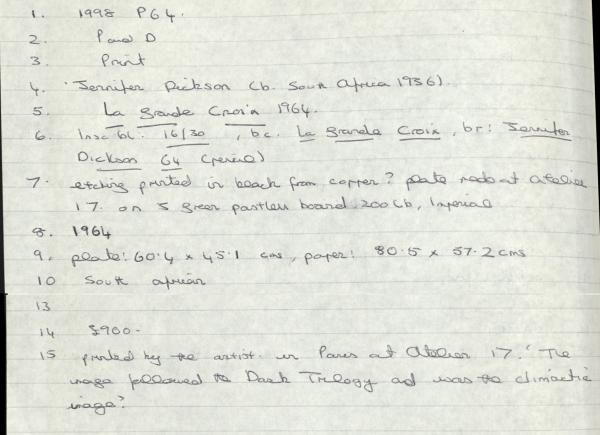 1. 1998 P64.
2. P and D
3. Print
4. Jennifer Dickson (b. South Africa 1936).
5. La Grande Croix 1964.
6. Insc bl: 16/30, bc. La Grande Croix, br: Jennifer
Dickson 64 (pencil)
7. etching printed in black from copper? plate made at atelier
17. on board. 200 lb, Imperial
8. 1964
9. plate: 60.4 x 45.1 cms, paper: 80.5 x 57.2 cms
10 South african
13
14 $900-
15 printed by the artist in Paris at Atelier 17. 'The
image followed the Dark Trilogy and was the climactic
image?